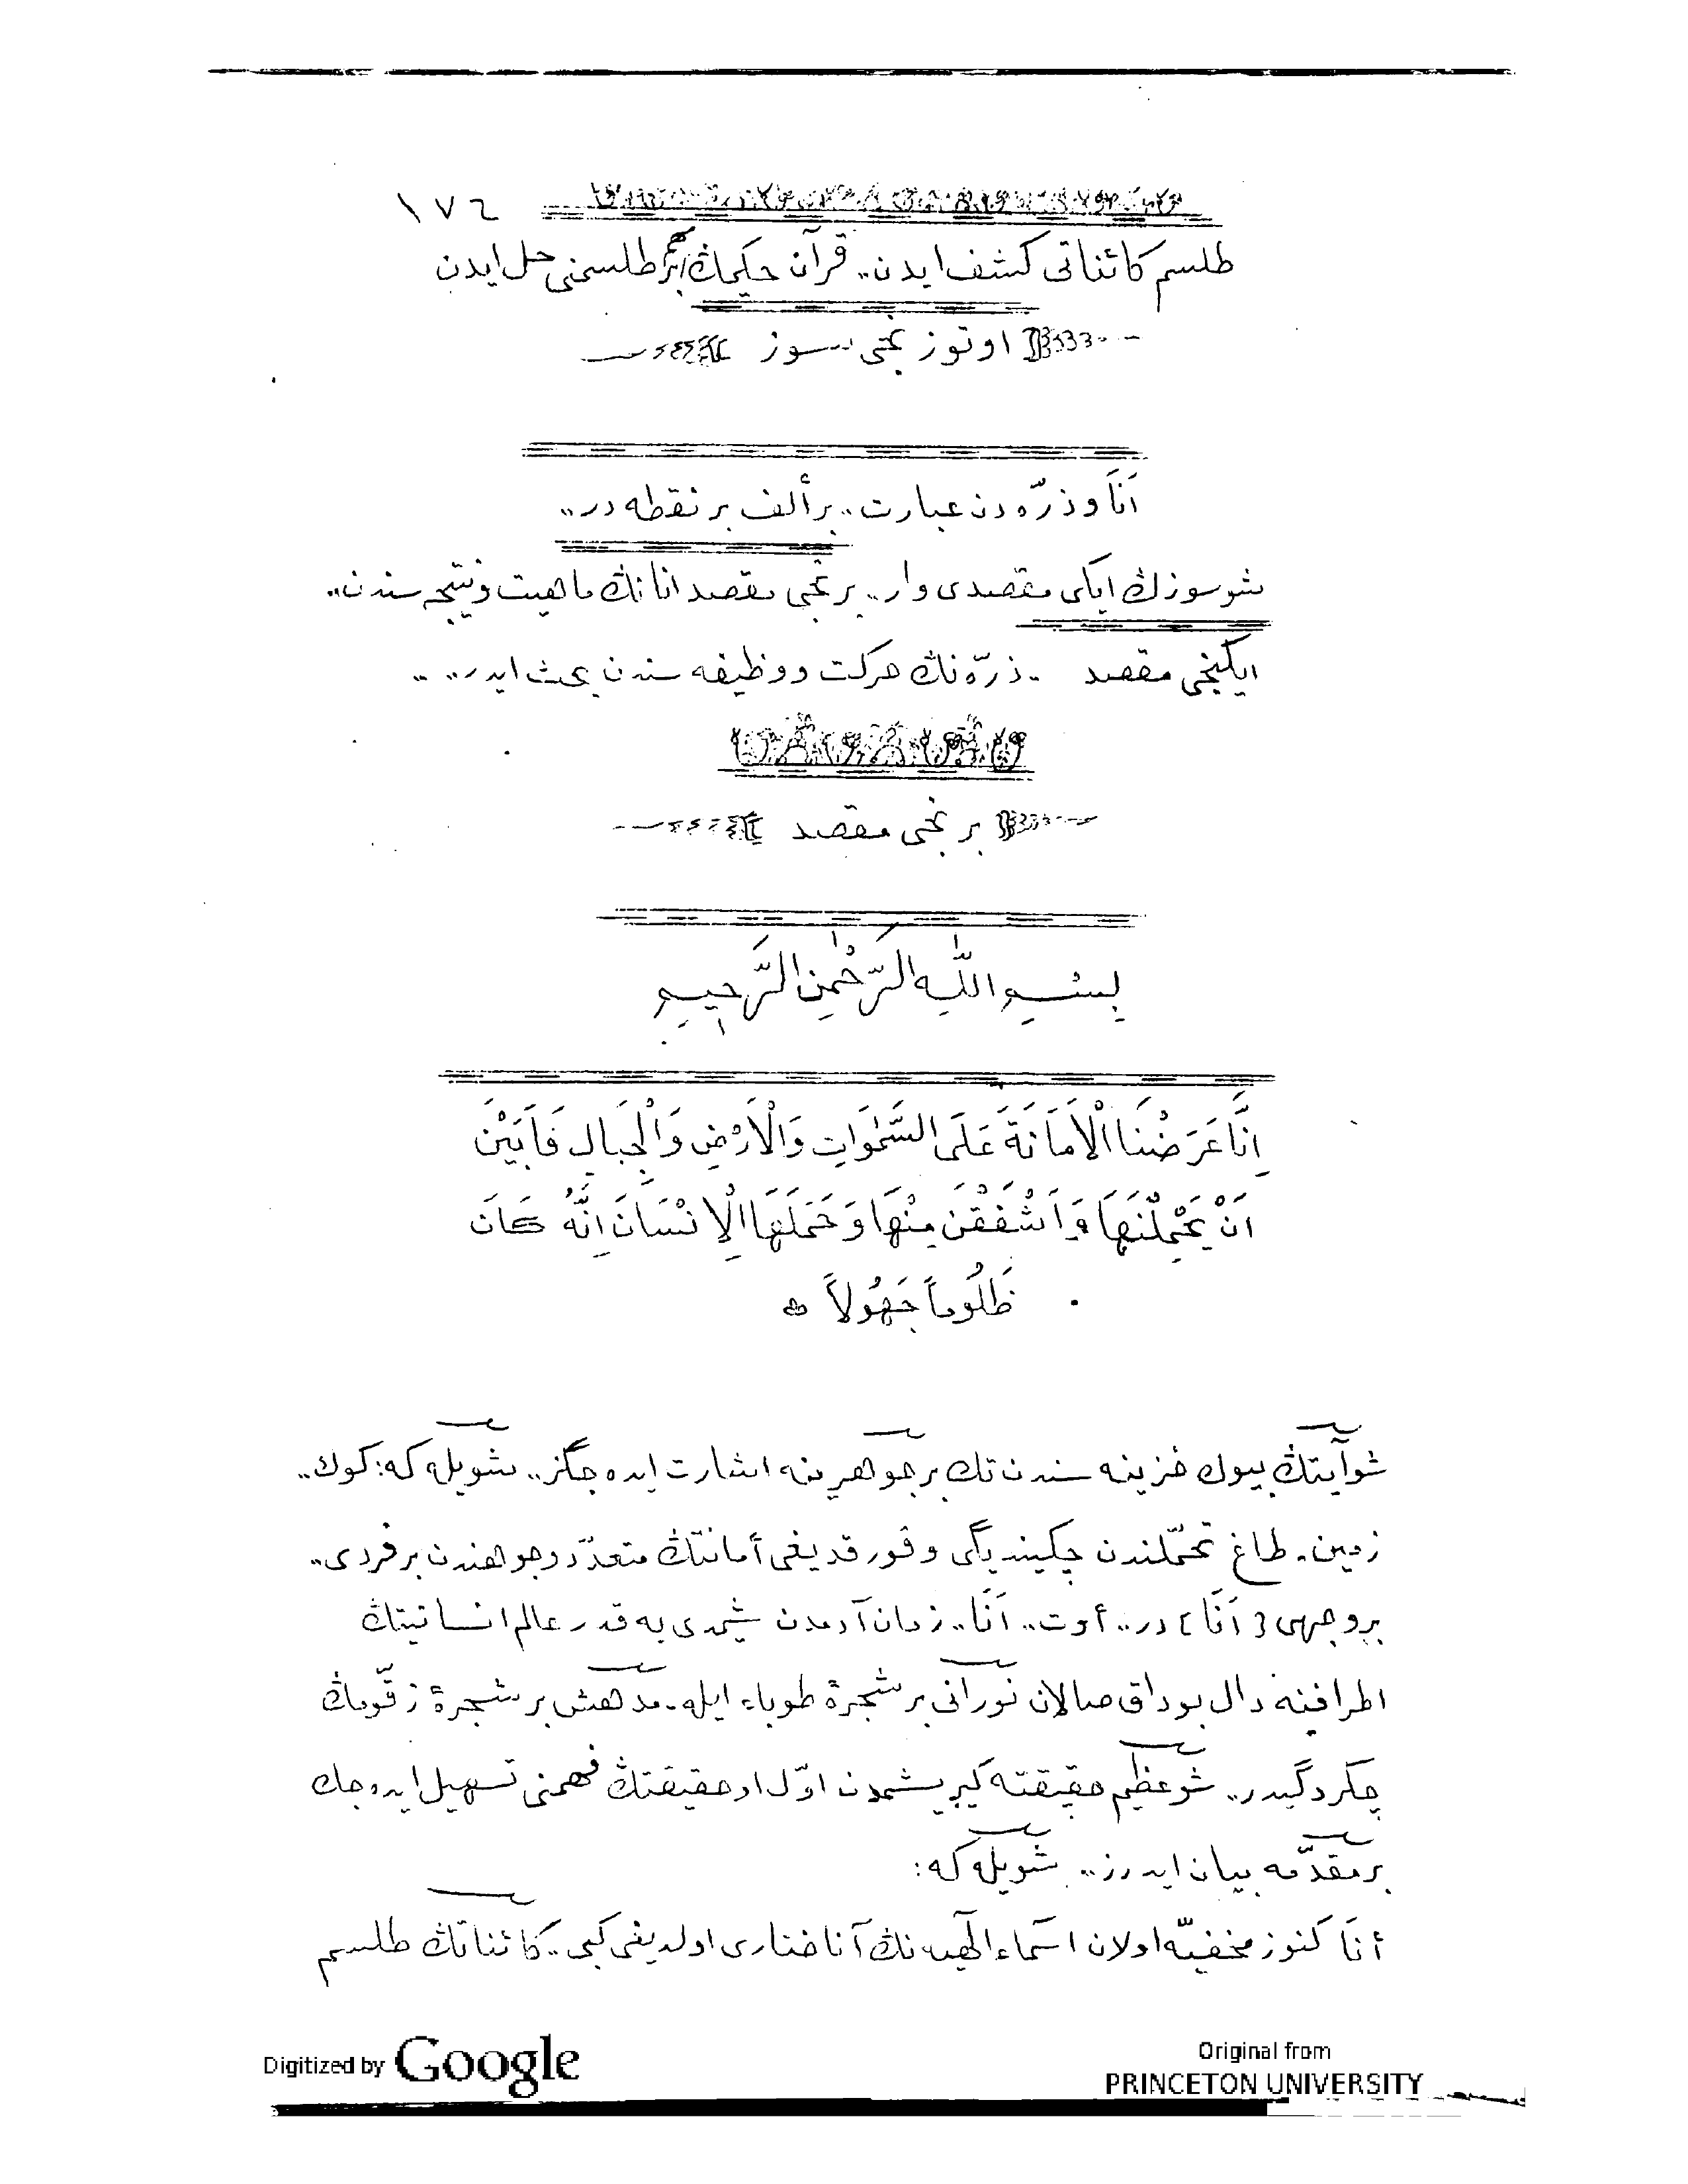 ١٧٦
طلسم كائناتى كشف ايدن.. قرآن حكيمڭ بر طلسمنى حل ايدن
اوتوزنجى سوز
اَنَا و ذرّه دن عبارت.. بر ألف بر نقطه در..
شو سوزڭ ايكى مقصدى وار.. برنجى مقصد انانڭ ماهيت و نتيجه سندن..
ايكنجى مقصد . ذرّه نڭ حركت و وظيفه سندن بحث ايدر....
برنجى مقصد
بِسْـمِ اللّٰهِ الرَّحْمٰنِ الرَّحِيـمِ
اِنَّا عَرَضْنَا الْاَمَانَةَ عَلَى السَّمٰوَاتِ وَالْاَرْضِ وَالْجِبَالِ فَاَبَيْنَ
اَنْ يَحْمِلْنَهَا وَاَشْفَقْنَ مِنْهَا وَحَمَلَهَا الْاِنْسَانُ اِنَّهُ كَانَ
ظَلُومًا جَهُولاً
شو آيتڭ بيوك خزينه سندن تك بر جوهرينه اشارت ايده جگز.. شويله كه: كوك..
زمين. طاغ تحمّلندن چكينديگى و قورقديغى أمانتڭ متعدّد وجوهندن بر فردى..
بر وجهى [ اَنَا ] در.. أوت.. اَنَا.. زمان آدمدن شيمدى يه قدر عالم انسانيتڭ
اطرافنه دال بوداق صالان نورانى بر شجرۀ طوباء ايله. مدهش بر شجرۀ زقّومڭ
چكردگيدر.. شو عظيم حقيقته كيريشمدن اوّل او حقيقتڭ فهمنى تسهيل ايده جك
بر مقدّمه بيان ايدرز.. شويله كه:
أنَا كنوز مخفيّه اولان اسماء الٓهيه نڭ آناختارى اولديغى كبى.. كائناتڭ طلسم
Digitized by Google
Original from
PRINCETON UNIVERSITY